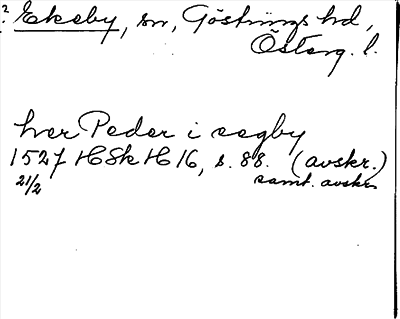 ? Ekeby, sn, Göstrings hd,
Österg. l.
her Peder i eegby
1527 HSkH 16, s. 88. (avskr.)
21/2 samt. avskr.